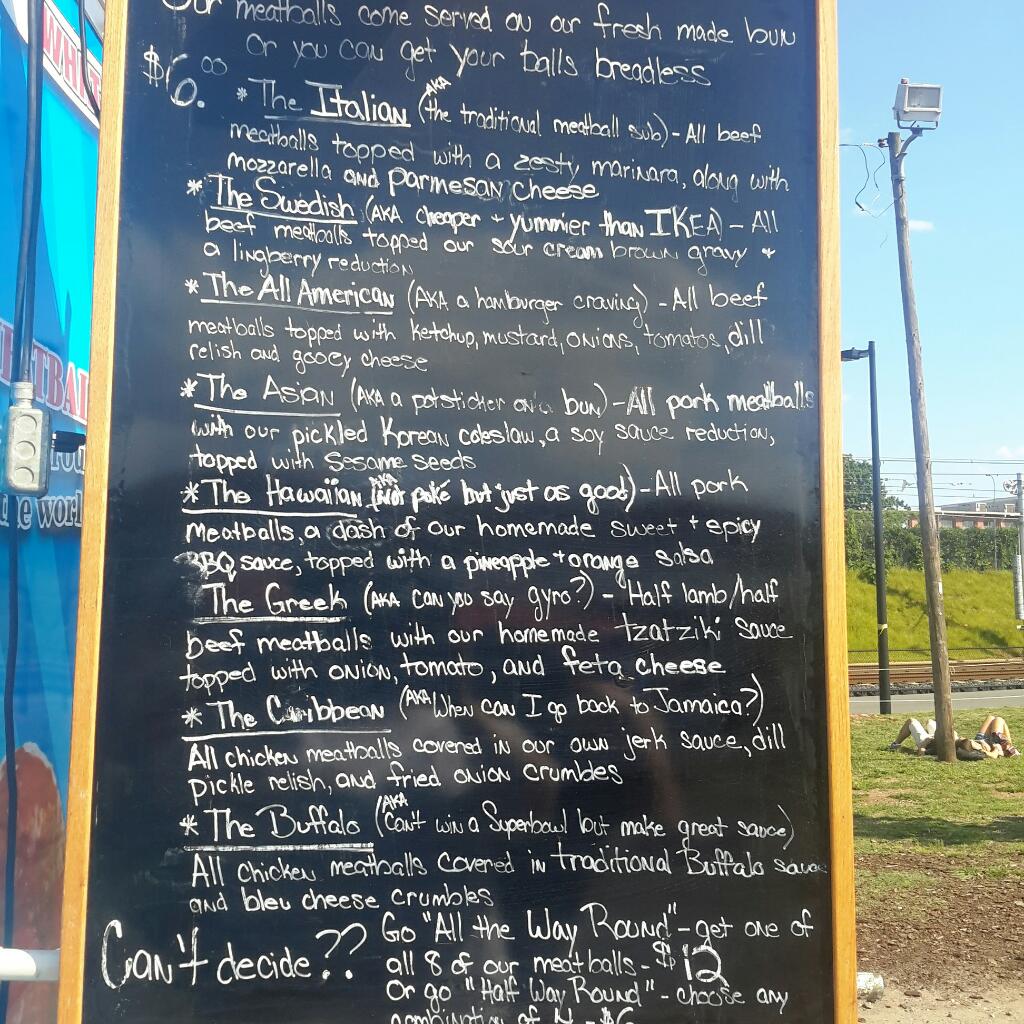 Our meatballs come served on our fresh made bun
Or you can get your balls breadless
$6.00
* The Italian (AKA the traditional meatball sub) - All beef
meatballs topped with a zesty marinara, along with
mozzarella and parmesan cheese
* The Swedish (AKA cheaper + yummier than IKEA) - All
beef meatballs topped our sour cream brown gravy +
a lingberry reduction
* The All American (AKA a hamburger craving) - All beef
meatballs topped with ketchup, mustard, onions, tomatos, dill
relish and gooey cheese
* The Asian (AKA a potsticker on a bun) - All pork meatballs
with our pickled Korean coleslaw, a soy sauce reduction,
topped with Sesame seeds
* The Hawaiian (AKA Not poké but just as good) - All pork
Meatballs, a dash of our homemade sweet + spicy
BBQ sauce, topped with a pineapple + orange salsa
The Greek (AKA Can you say gyro?) - Half lamb/half
beef meatballs with our homemade tzatziki sauce
topped with onion, tomato, and feta cheese
* The Caribbean (AKA When can I go back to Jamaica?)
All chicken meatballs covered in our own jerk sauce, dill
pickle relish, and fried onion crumbles
* The Buffalo (AKA Can't win a Superbowl but make great sauce)
All chicken meatballs covered in traditional Buffalo sauce
and bleu cheese crumbles
Can't decide?? Go "All the Way Round" - get one of
all 8 of our meatballs - $12
Or go "Half Way Round" - choose any
combination of 4 - $6